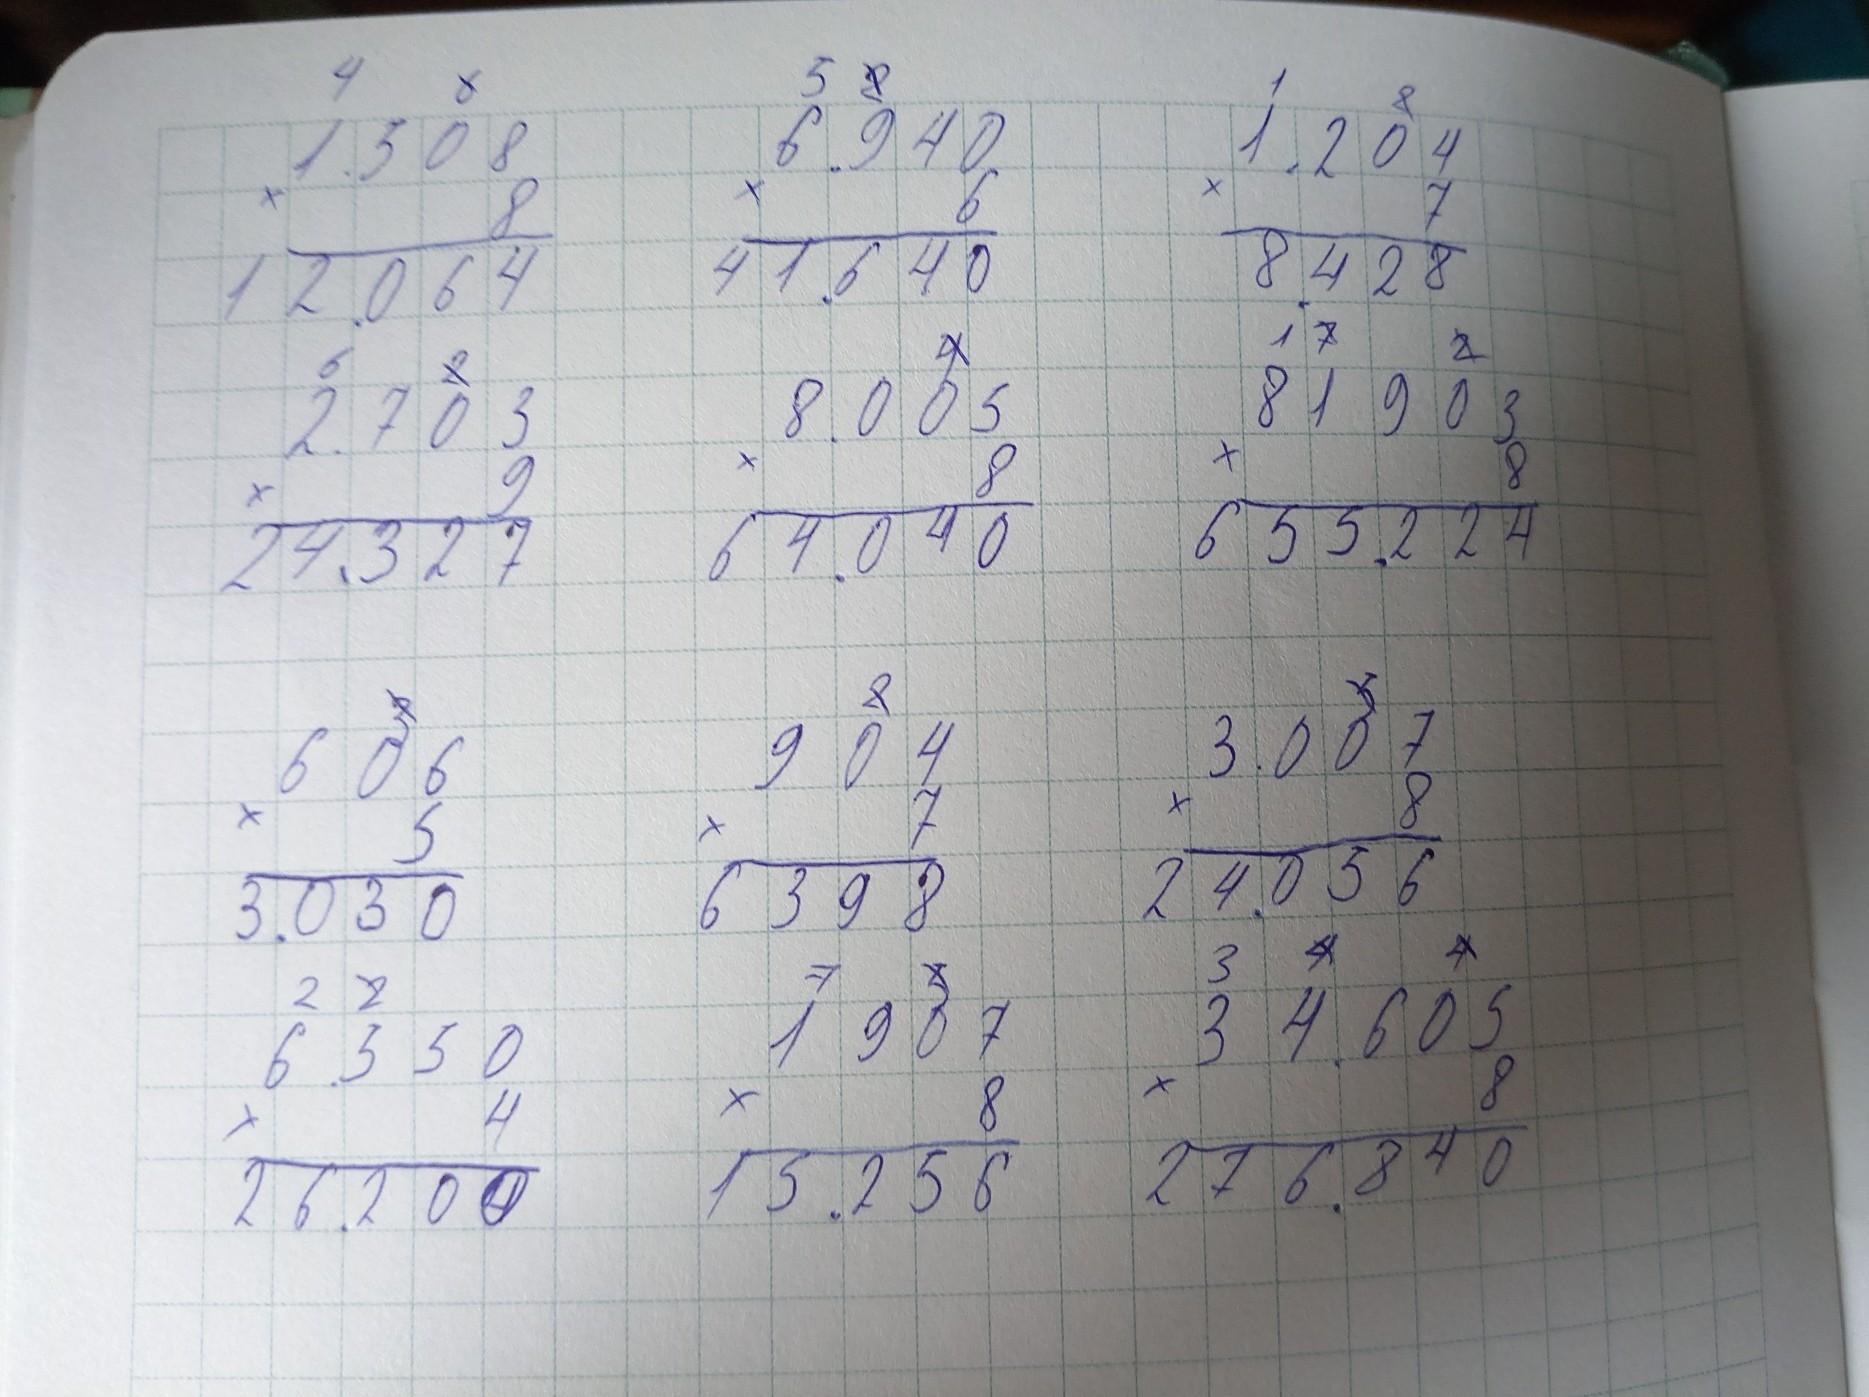 4 5 1
1.508 6.940 1.204
× 8 × 6 × 7
12.064 41.640 8.428
6 2 4 1 7 2
2.703 8.005 81903
× 9 × 8 × 8
24.327 64.040 655.224
2
606 904 3.007
× 5 × 7 × 8
3.030 6398 24.056
2 2 7 3 4 4
6.550 1907 34.605
× 4 × 8 × 8
26.200 15.256 276.840